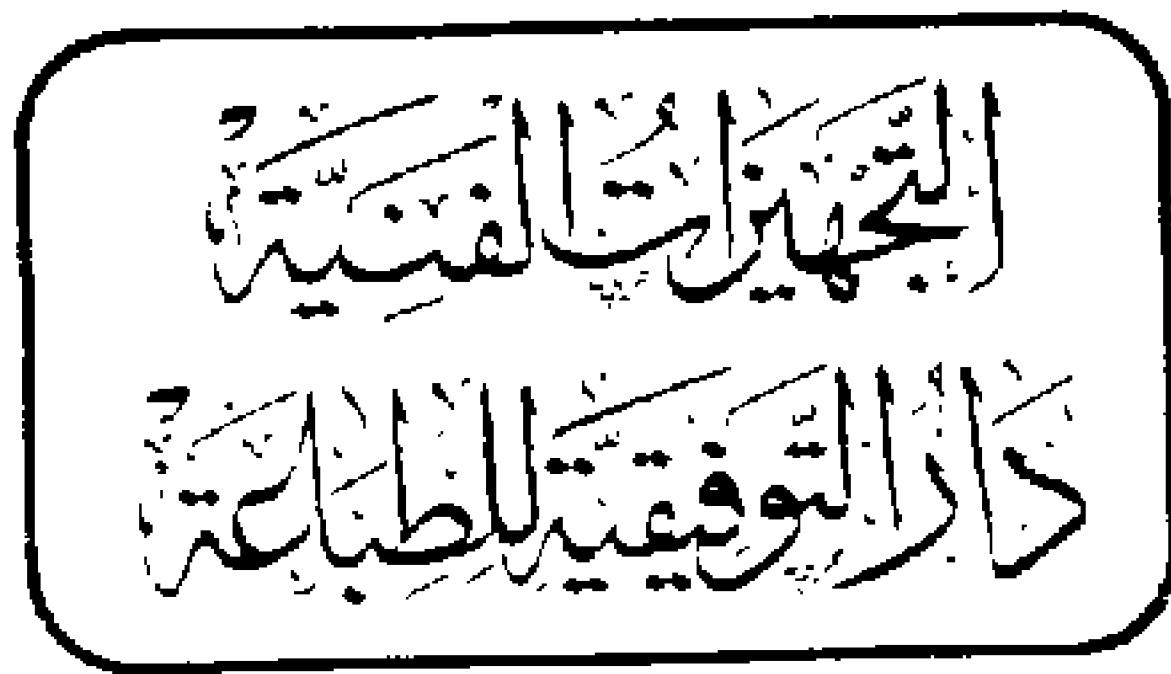 التَّجْهِيزَاتُ الفَنِيَّةُ
دَارُ التَّوفِيقِيَّة لِلطِبَاعَةُ